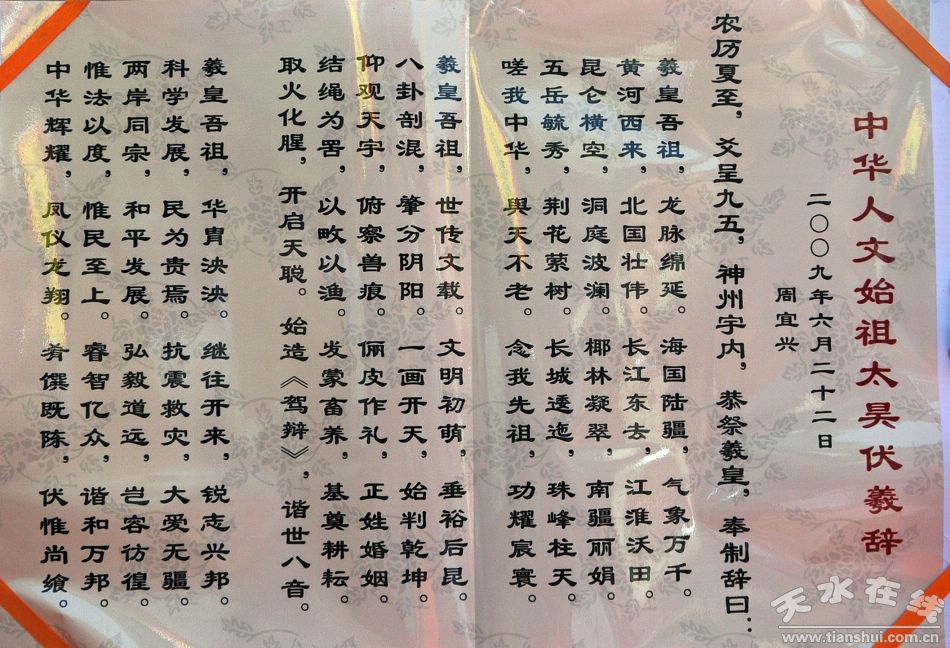 中华人文始祖太昊伏羲辞
二〇〇九年六月二十二日
周宜兴
农历夏至，爻呈九五，神州宇内，恭祭羲皇，奉制辞曰：
羲皇吾祖，龙脉绵延。海国陆疆，气象万千。
黄河西来，北国壮伟。长江东去，江淮沃田。
昆仑横空，洞庭波澜。椰林凝翠，南疆丽娟。
五岳毓秀，荆花萦树。长城逶迤，珠峰柱天。
嗟我中华，与天不老。念我先祖，功耀宸寰。
羲皇吾祖，世传文载。文明初萌，垂裕后昆。
八卦剖混，肇分阴阳。一画开天，始判乾坤。
仰观天宇，俯察兽痕。俪皮作礼，正姓婚姻。
结绳为罟，以畋以渔。发蒙畜养，基奠耕耘。
取火化腥，开启天聪。始造《驾辩》，谐世八音。
羲皇吾祖，华胄泱泱。继往开来，锐志兴邦。
科学发展，民为贵焉。抗震救灾，大爱无疆。
两岸同宗，和平发展。弘毅道远，岂容彷徨。
惟法以度，惟民至上。睿智亿众，谐和万邦。
中华辉耀，凤仪龙翔。肴馔既陈，伏惟尚飨。
天水在线
www.tianshui.com.cn